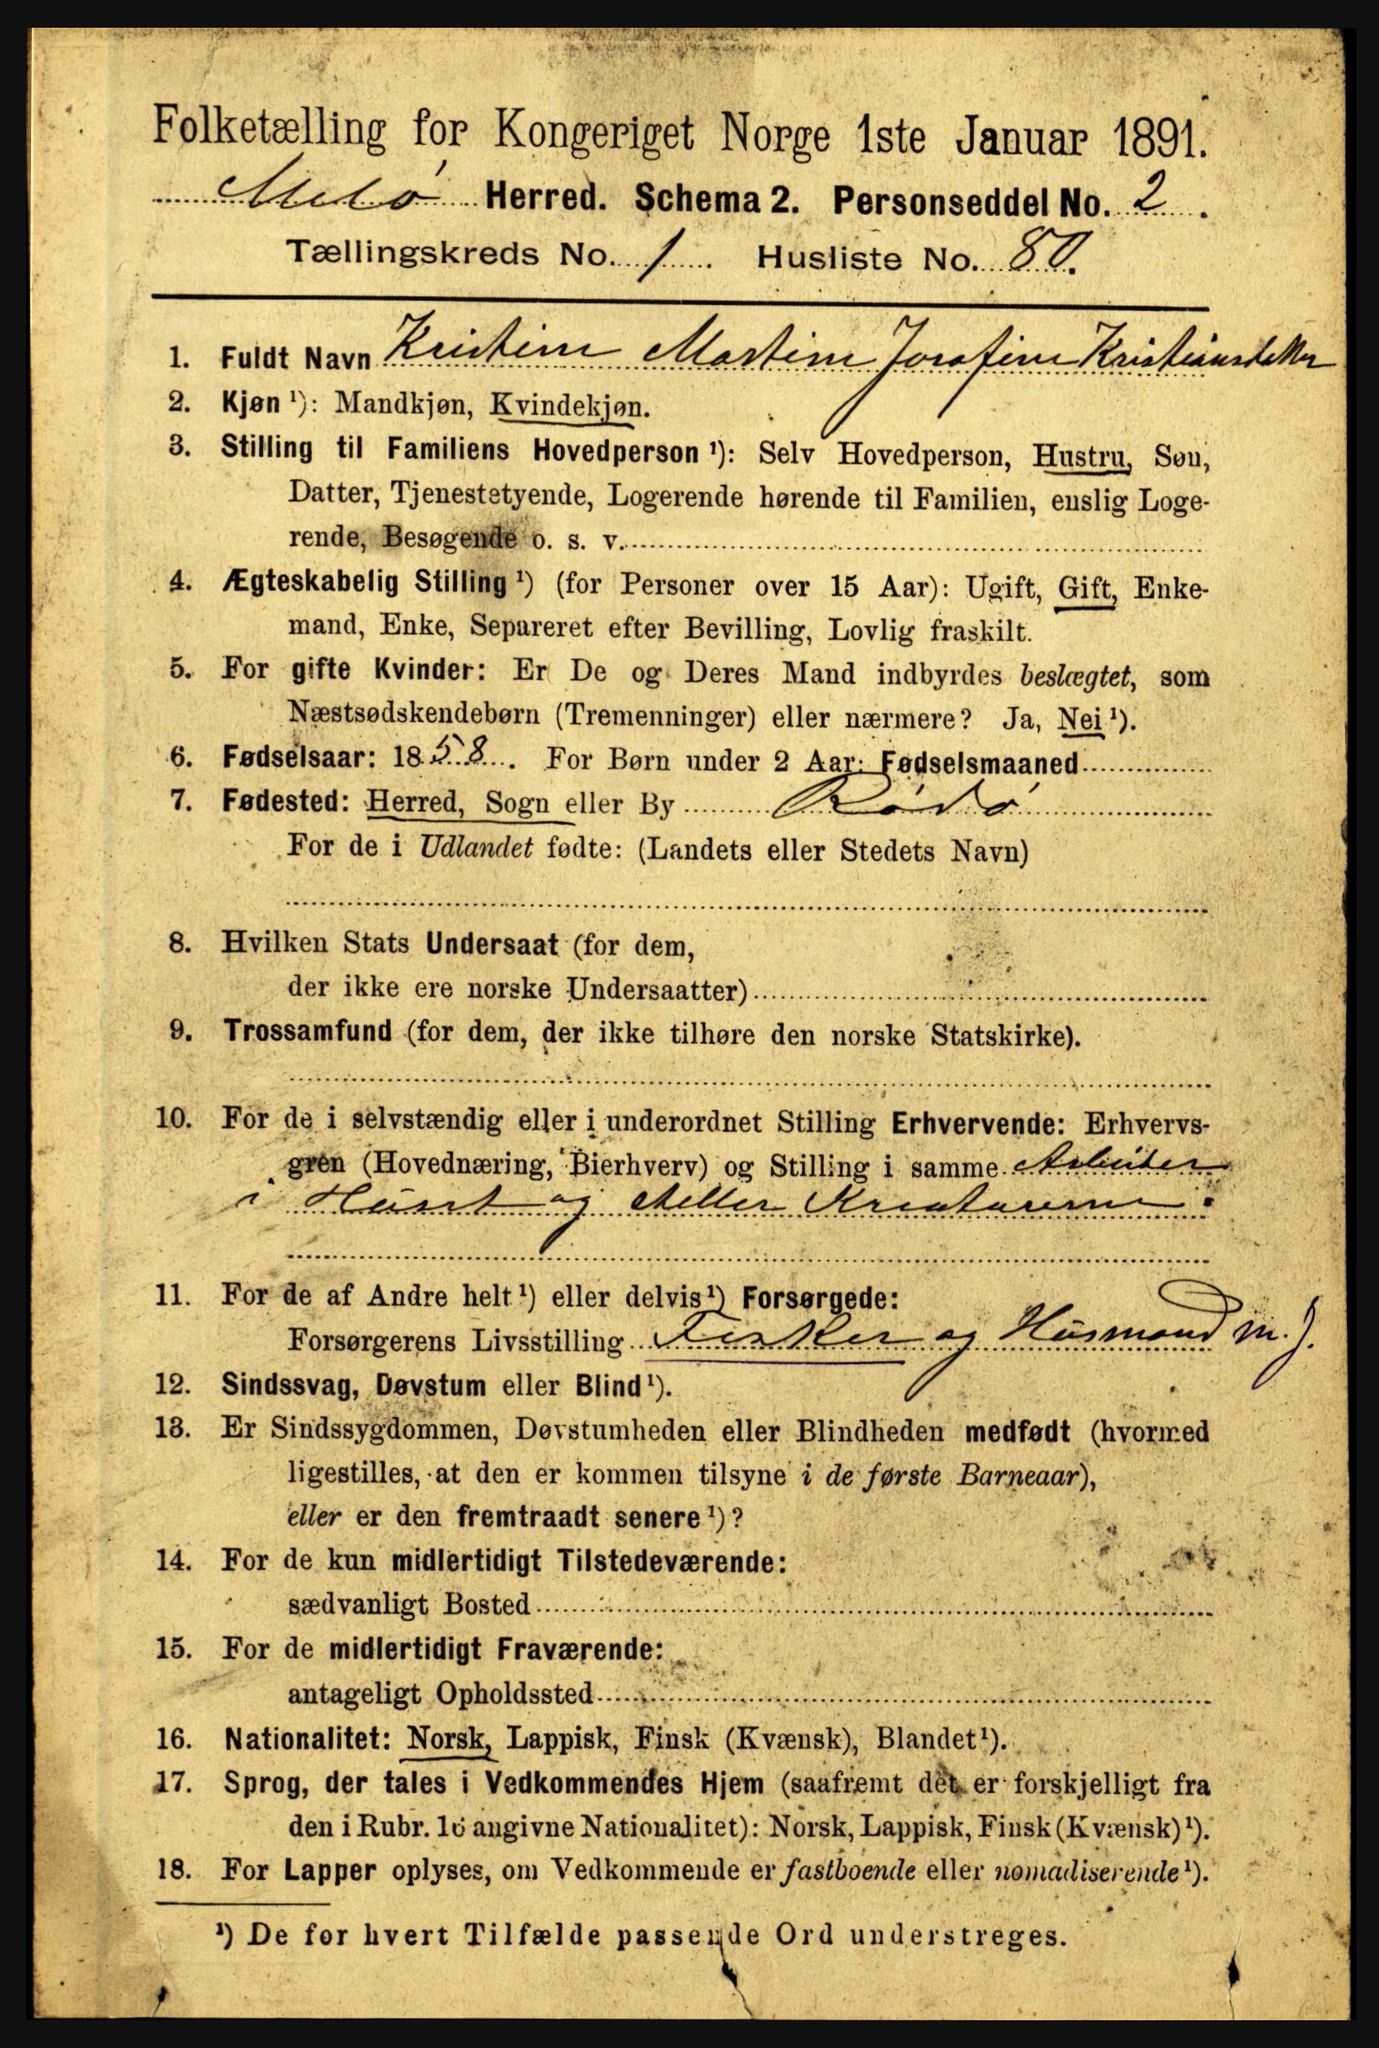 Folketælling for Kongeriget Norge 1ste Januar 1891.
Melø Herred. Schema 2. Personseddel No. 2.
Tællingskreds No. 1. Husliste No. 80.
1. Fuldt Navn Kristine Martine Josefine Kristiansdatter
2. Kjøn ¹): Mandkjøn, Kvindekjøn.
3. Stilling til Familiens Hovedperson ¹): Selv Hovedperson, Hustru, Søn,
Datter, Tjenestetyende, Logerende hørende til Familien, enslig Loge-
rende, Besøgende o. s. v.
4. Ægteskabelig Stilling ¹) (for Personer over 15 Aar): Ugift, Gift, Enke-
mand, Enke, Separeret efter Bevilling, Lovlig fraskilt.
5. For gifte Kvinder: Er De og Deres Mand indbyrdes beslægtet, som
Næstsødskendebørn (Tremenninger) eller nærmere? Ja, Nei ¹).
6. Fødselsaar: 1858. For Børn under 2 Aar: Fødselsmaaned
7. Fødested: Herred, Sogn eller By Rødø
For de i Udlandet fødte: (Landets eller Stedets Navn)
8. Hvilken Stats Undersaat (for dem,
der ikke ere norske Undersaatter)
9. Trossamfund (for dem, der ikke tilhøre den norske Statskirke).
10. For de i selvstændig eller i underordnet Stilling Erhvervende: Erhvervs-
gren (Hovednæring, Bierhverv) og Stilling i samme Arbeider
i Huset og steller Kreaturerne.
11. For de af Andre helt ¹) eller delvis ¹) Forsørgede:
Forsørgerens Livsstilling Fisker og Husmand m. J.
12. Sindssvag, Døvstum eller Blind ¹).
13. Er Sindssygdommen, Døvstumheden eller Blindheden medfødt (hvormed
ligestilles, at den er kommen tilsyne i de første Barneaar),
eller er den fremtraadt senere ¹)?
14. For de kun midlertidigt Tilstedeværende:
sædvanligt Bosted
15. For de midlertidigt Fraværende:
antageligt Opholdssted
16. Nationalitet: Norsk, Lappisk, Finsk (Kvænsk), Blandet ¹).
17. Sprog, der tales i Vedkommendes Hjem (saafremt det er forskjelligt fra
den i Rubr. 16 angivne Nationalitet): Norsk, Lappisk, Finsk (Kvænsk) ¹).
18. For Lapper oplyses, om Vedkommende er fastboende eller nomadiserende ¹).
¹) De for hvert Tilfælde passende Ord understreges.